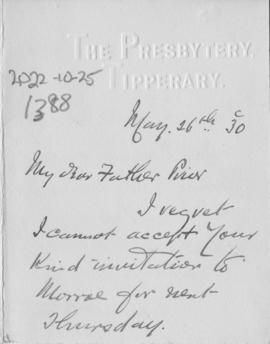 THE PRESBYTERY,
TIPPERARY.
2022-10-25
1388
May. 26th '30
My dear Father Prior
I regret
I cannot accept your
kind invitation to
Morroe for next
Thursday.